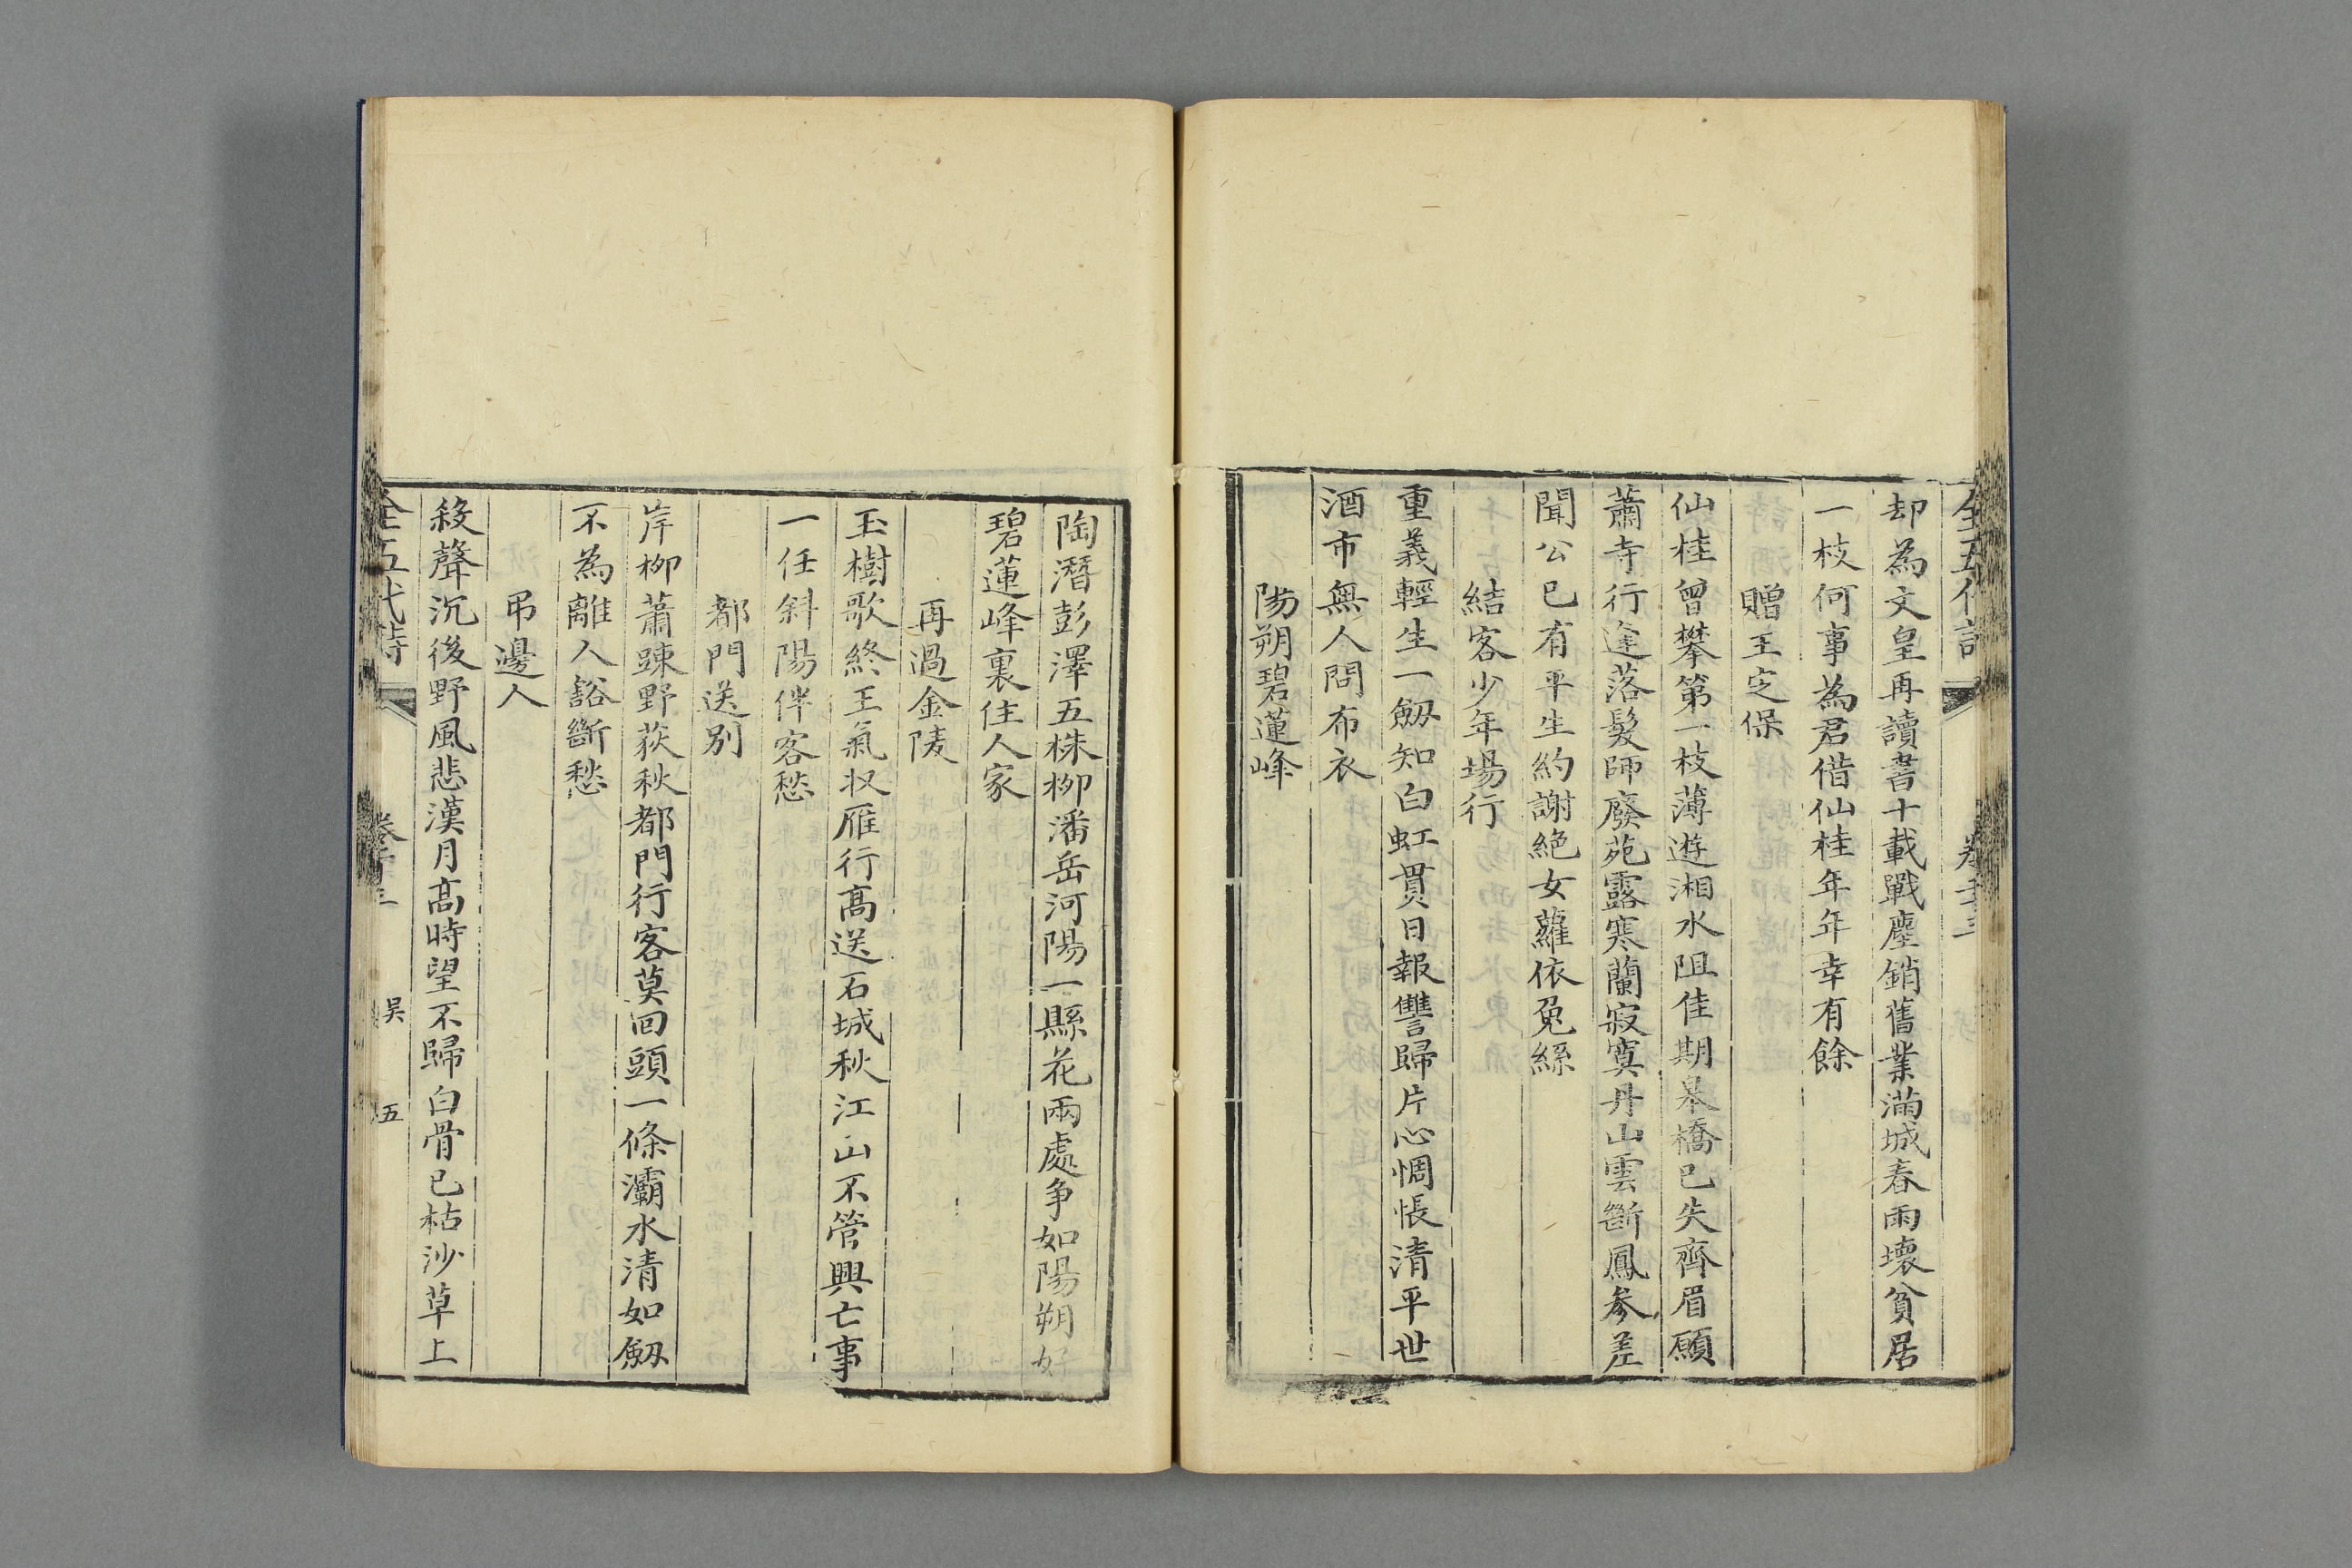 全五代詩
却為文皇再讀書十載戰塵銷舊業滿城春雨壞貧居
一枝何事為君借仙桂年年幸有餘
贈王定保
仙桂曾攀第一枝薄遊湘水阻佳期皋橋已失齊眉願
蕭寺行逢落髮師廢苑露寒蘭寂寞丹山雲斷鳳參差
聞公已有平生約謝絕女蘿依兔絲
結客少年場行
重義輕生一劔知白虹貫日報讐歸片心惆悵清平世
酒市無人問布衣
陽朔碧蓮峰
陶潛彭澤五株柳潘岳河陽一縣花兩處争如陽朔好
碧蓮峰裏住人家
再過金陵
玉樹歌終王氣収雁行高送石城秋江山不管興亡事
一任斜陽伴客愁
都門送別
岸柳蕭踈野荻秋都門行客莫回頭一條灞水清如劔
不為離人豁斷愁
弔邊人
殺聲沉後野風悲漢月高時望不歸白骨已枯沙草上
全五代詩 吳 五